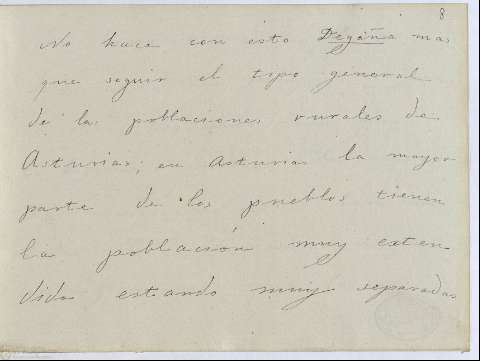 8
No hace con esto Degaña mas
que seguir el tipo general
de las poblaciones rurales de
Asturias; en Asturias la mayor
parte de los pueblos tienen
la población muy exten
dida estando muy separadas